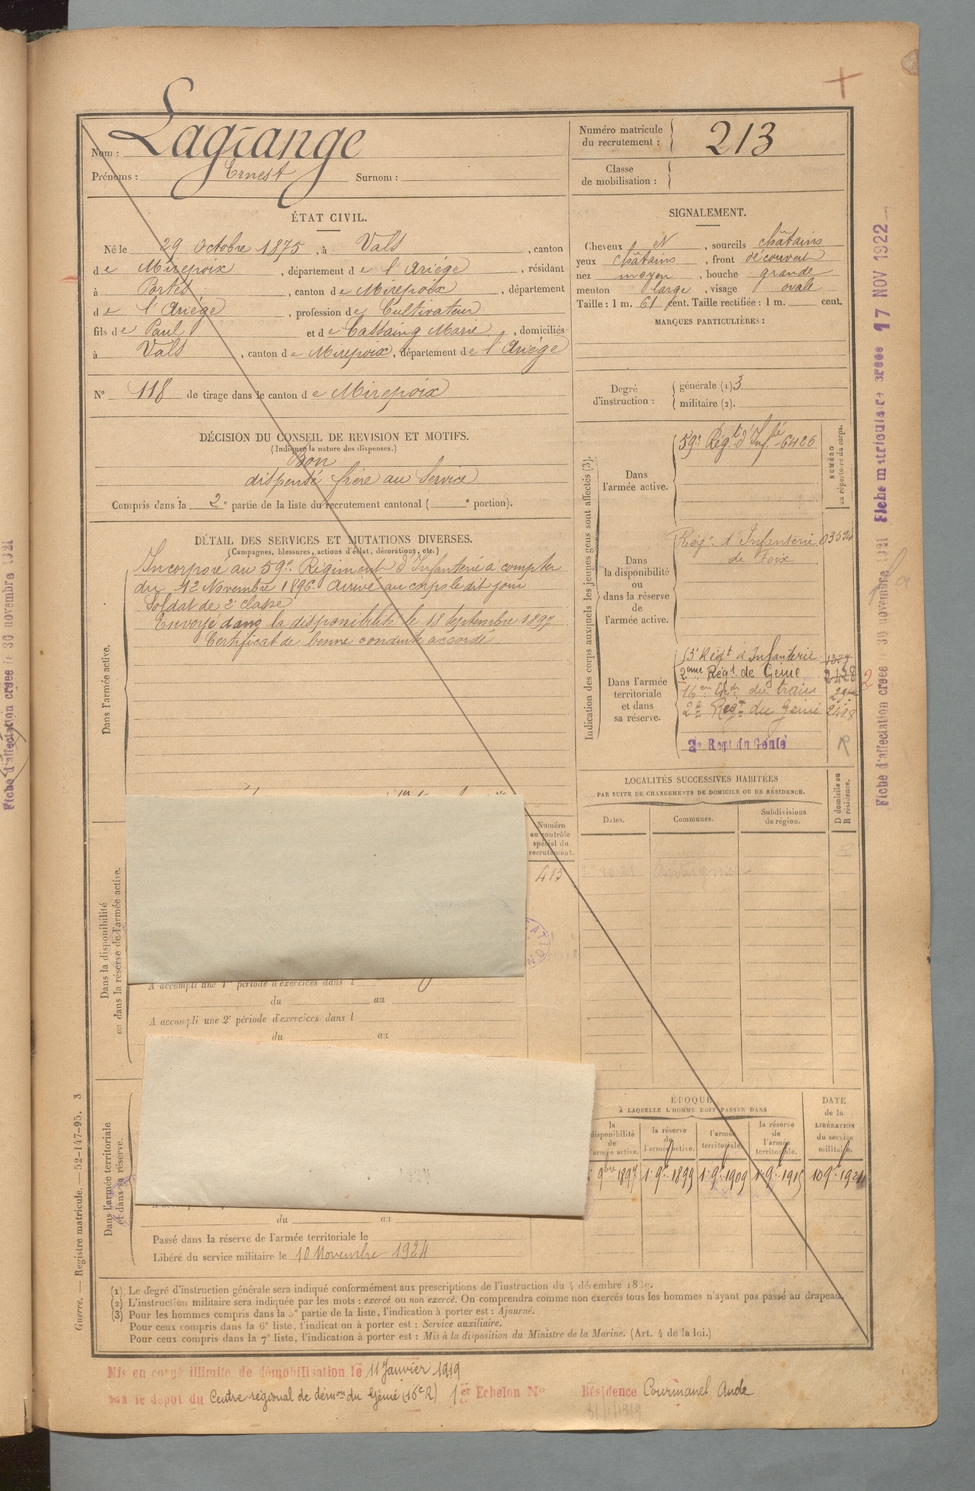 Lagrange
Nom :
Prénoms : Ernest Surnom :
Numéro matricule du recrutement : 213
Classe de mobilisation :
ÉTAT CIVIL.
Né le 29 Octobre 1875, à Vals, canton
de Mirepoix, département de l'Ariége, résidant
à Portes, canton de Mirepoix, département
de l'Ariége, profession de Cultivateur
fils de Paul et de Castaing Marie, domiciliés
à Vals, canton de Mirepoix, département de l'Ariége
N° 118 de tirage dans le canton de Mirepoix
SIGNALEMENT.
Cheveux N, sourcils châtains
yeux châtains, front découvert
nez moyen, bouche grande
menton large, visage ovale
Taille : 1 m. 61 cent. Taille rectifiée : 1 m. cent.
MARQUES PARTICULIÈRES :
Degré d'instruction : générale (1) 3
militaire (2).
DÉCISION DU CONSEIL DE REVISION ET MOTIFS.
(Indiquer la nature des dispenses.)
Bon
dispensé frère au Service
Compris dans la 2e partie de la liste du recrutement cantonal ( e portion).
DÉTAIL DES SERVICES ET MUTATIONS DIVERSES.
(Campagnes, blessures, actions d'éclat, décorations, etc.)
Dans l'armée active.
Incorporé au 59e Régiment d'Infanterie à compter
du 12 Novembre 1896. Arrivé au corps le dit jour
Soldat de 2e classe
Envoyé dans la disponibilité le 18 Septembre 1897
Certificat de bonne conduite accordé
Indication des corps auxquels les jeunes gens sont affectés (3).
NUMÉRO au répertoire du corps.
Dans l'armée active.
59e Régt d'Infie 6426
Dans la disponibilité ou dans la réserve de l'armée active.
Régt d'Infanterie de Foix 03524
Dans l'armée territoriale et dans sa réserve.
Régt d'Infanterie
2eme Régt de Génie
du train
2e Régt du Génie
2e Regt du Génie
R
LOCALITÉS SUCCESSIVES HABITÉES
PAR SUITE DE CHANGEMENTS DE DOMICILE OU DE RÉSIDENCE.
Dates. Communes. Subdivisions de région. D domicile ou R résidence.
Numéro au contrôle spécial du recrutement.
413
Dans la disponibilité ou dans la réserve de l'armée active.
A accompli une 1re période d'exercices dans l
du au
A accompli une 2e période d'exercices dans l
du au
Dans l'armée territoriale et dans sa réserve.
du au
Passé dans la réserve de l'armée territoriale le
Libéré du service militaire le 10 Novembre 1924
ÉPOQUE
À LAQUELLE L'HOMME DOIT PASSER DANS
la disponibilité de l'armée active.
la réserve de l'armée active.
l'armée territoriale.
la réserve de l'armée territoriale.
DATE de la LIBÉRATION du service militaire.
9bre 1897 1 9bre 1899 1 9bre 1909 1 9bre 1915 10 9bre 1924
(1) Le degré d'instruction générale sera indiqué conformément aux prescriptions de l'instruction du 4 décembre 1889.
(2) L'instruction militaire sera indiquée par les mots : exercé ou non exercé. On comprendra comme non exercés tous les hommes n'ayant pas passé au drapeau.
(3) Pour les hommes compris dans la 5e partie de la liste, l'indication à porter est : Ajourné.
Pour ceux compris dans la 6e liste, l'indication à porter est : Service auxiliaire.
Pour ceux compris dans la 7e liste, l'indication à porter est : Mis à la disposition du Ministre de la Marine. (Art. 4 de la loi.)
Guerre. — Registre matricule. — 52-147-95. 3
Mis en congé illimité de démobilisation le 11 Janvier 1919
par le dépôt du Centre régional de démon du Génie (16e R) 1er Echelon N° Résidence Cournanel Aude
Fiche matriculaire créée 17 NOV 1922
Fiche d'affectation créée le 30 novembre 1921
Fiche d'affectation créée le 30 novembre 1921